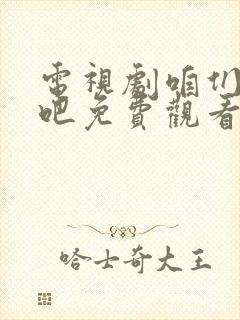 電視劇咱们
吧免費觀看
哈士奇大王